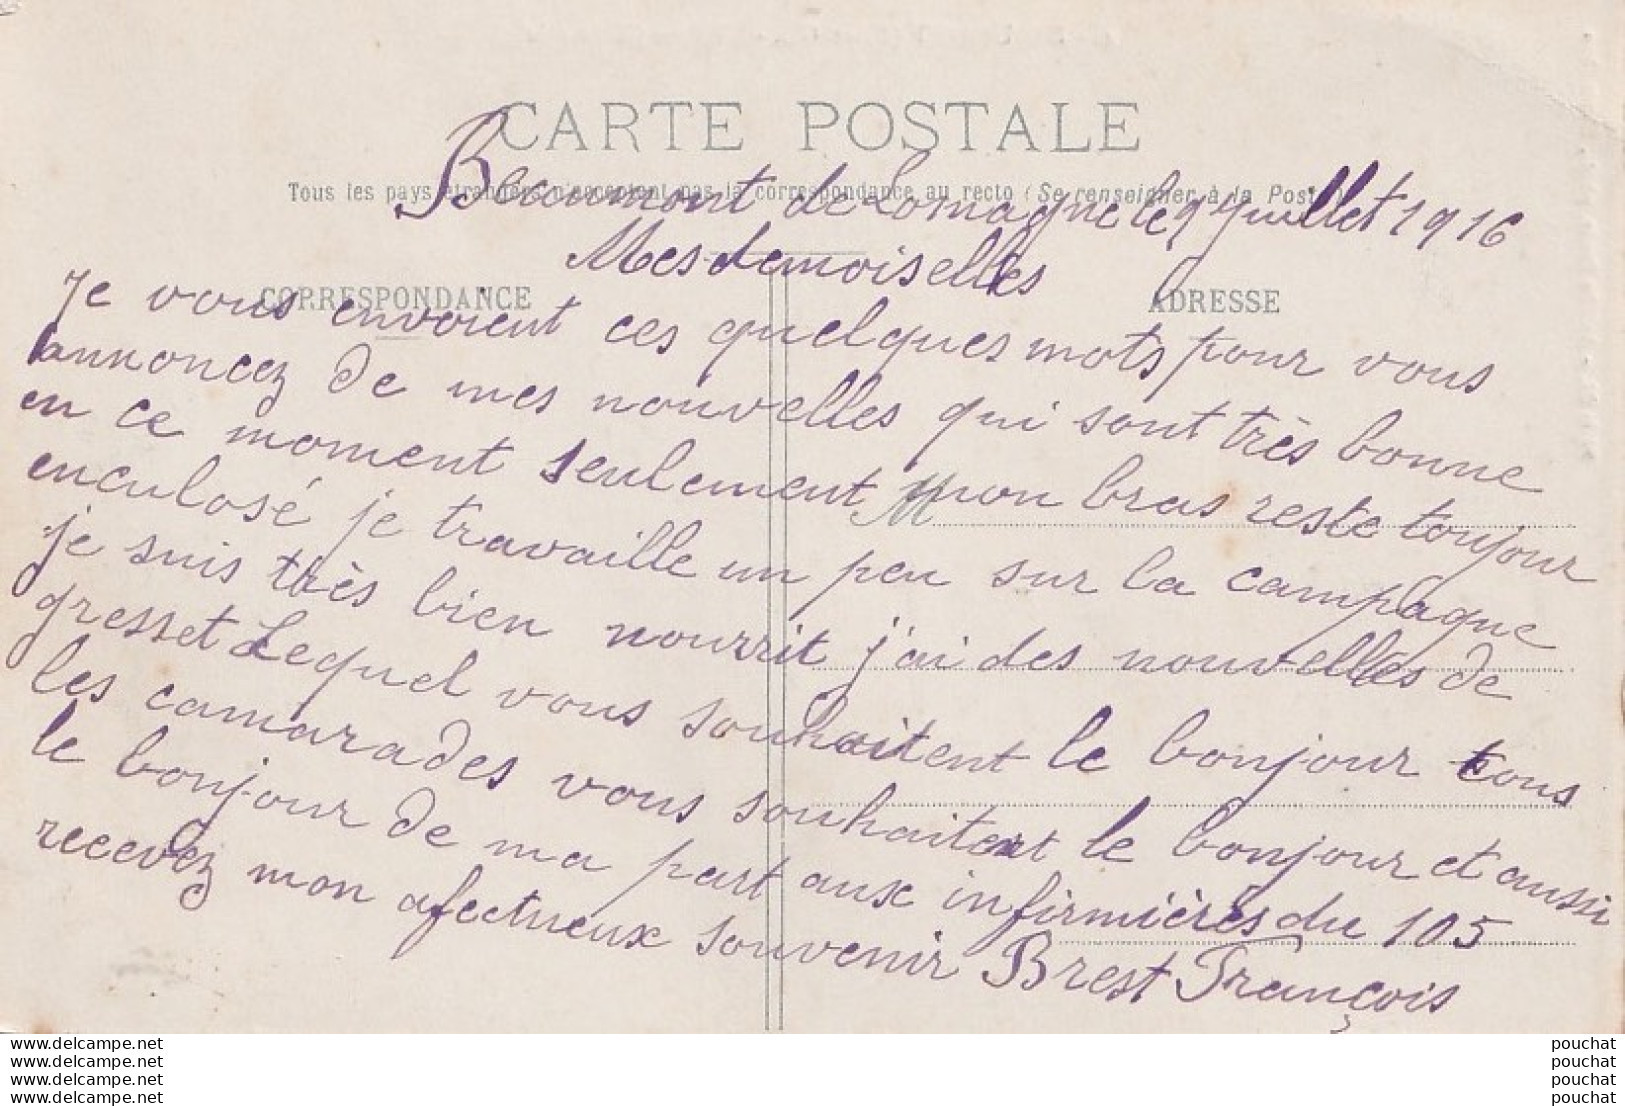 CARTE POSTALE
Tous les pays étrangers n'acceptent pas la correspondance au recto (Se renseigner à la Poste)
Beaumont de Lomagne le 9 Juillet 1916
Mesdemoiselles
CORRESPONDANCE
ADRESSE
Je vous envoient ces quelques mots pour vous
annoncez de mes nouvelles qui sont très bonne
en ce moment seulement mon bras reste toujour
enculosé je travaille un peu sur la campagne
je suis très bien nourrit j'ai des nouvelles de
gresset Lequel vous souhaitent le bonjour tous
les camarades vous souhaitent le bonjour et aussi
le bonjour de ma part aux infirmières du 105
recevez mon afectueux souvenir Brest François
M
www.delcampe.net pouchat
www.delcampe.net pouchat
www.delcampe.net pouchat
www.delcampe.net pouchat